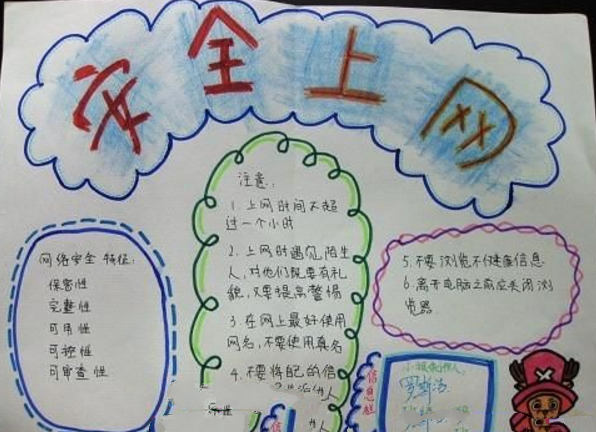 安全上网
网络安全 特征:
保密性
完整性
可用性
可控性
可审查性
注意:
1. 上网时间不超
过一个小时
2. 上网时遇见陌生
人,对他们既要有礼
貌,又要提高警惕
3. 在网上最好使用
网名,不要使用真名
4. 不要将自己的信
人
5. 不要浏览不健康信息
6. 离开电脑之前应关闭浏
览器
信息
人